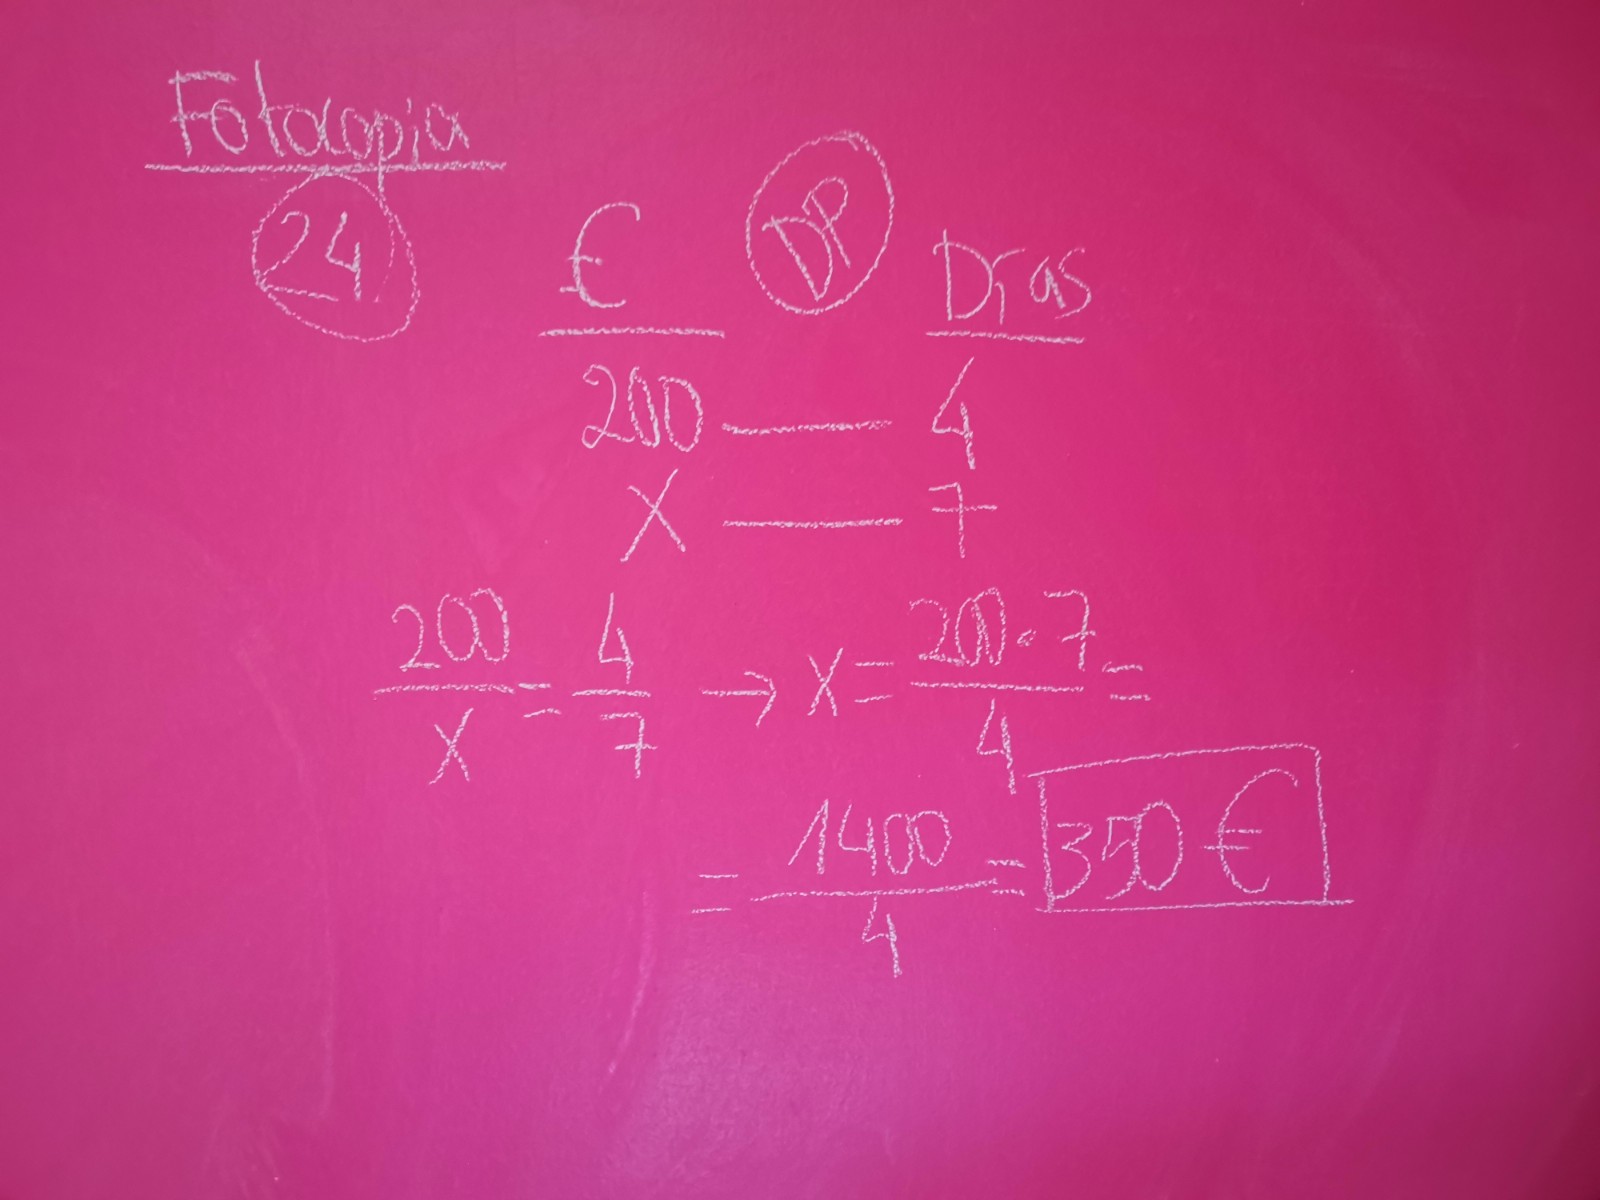 Fotocopia
24 € DP Días
200 — 4
X — 7
200/X = 4/7 → X = 200·7/4 =
= 1400/4 = 350 €